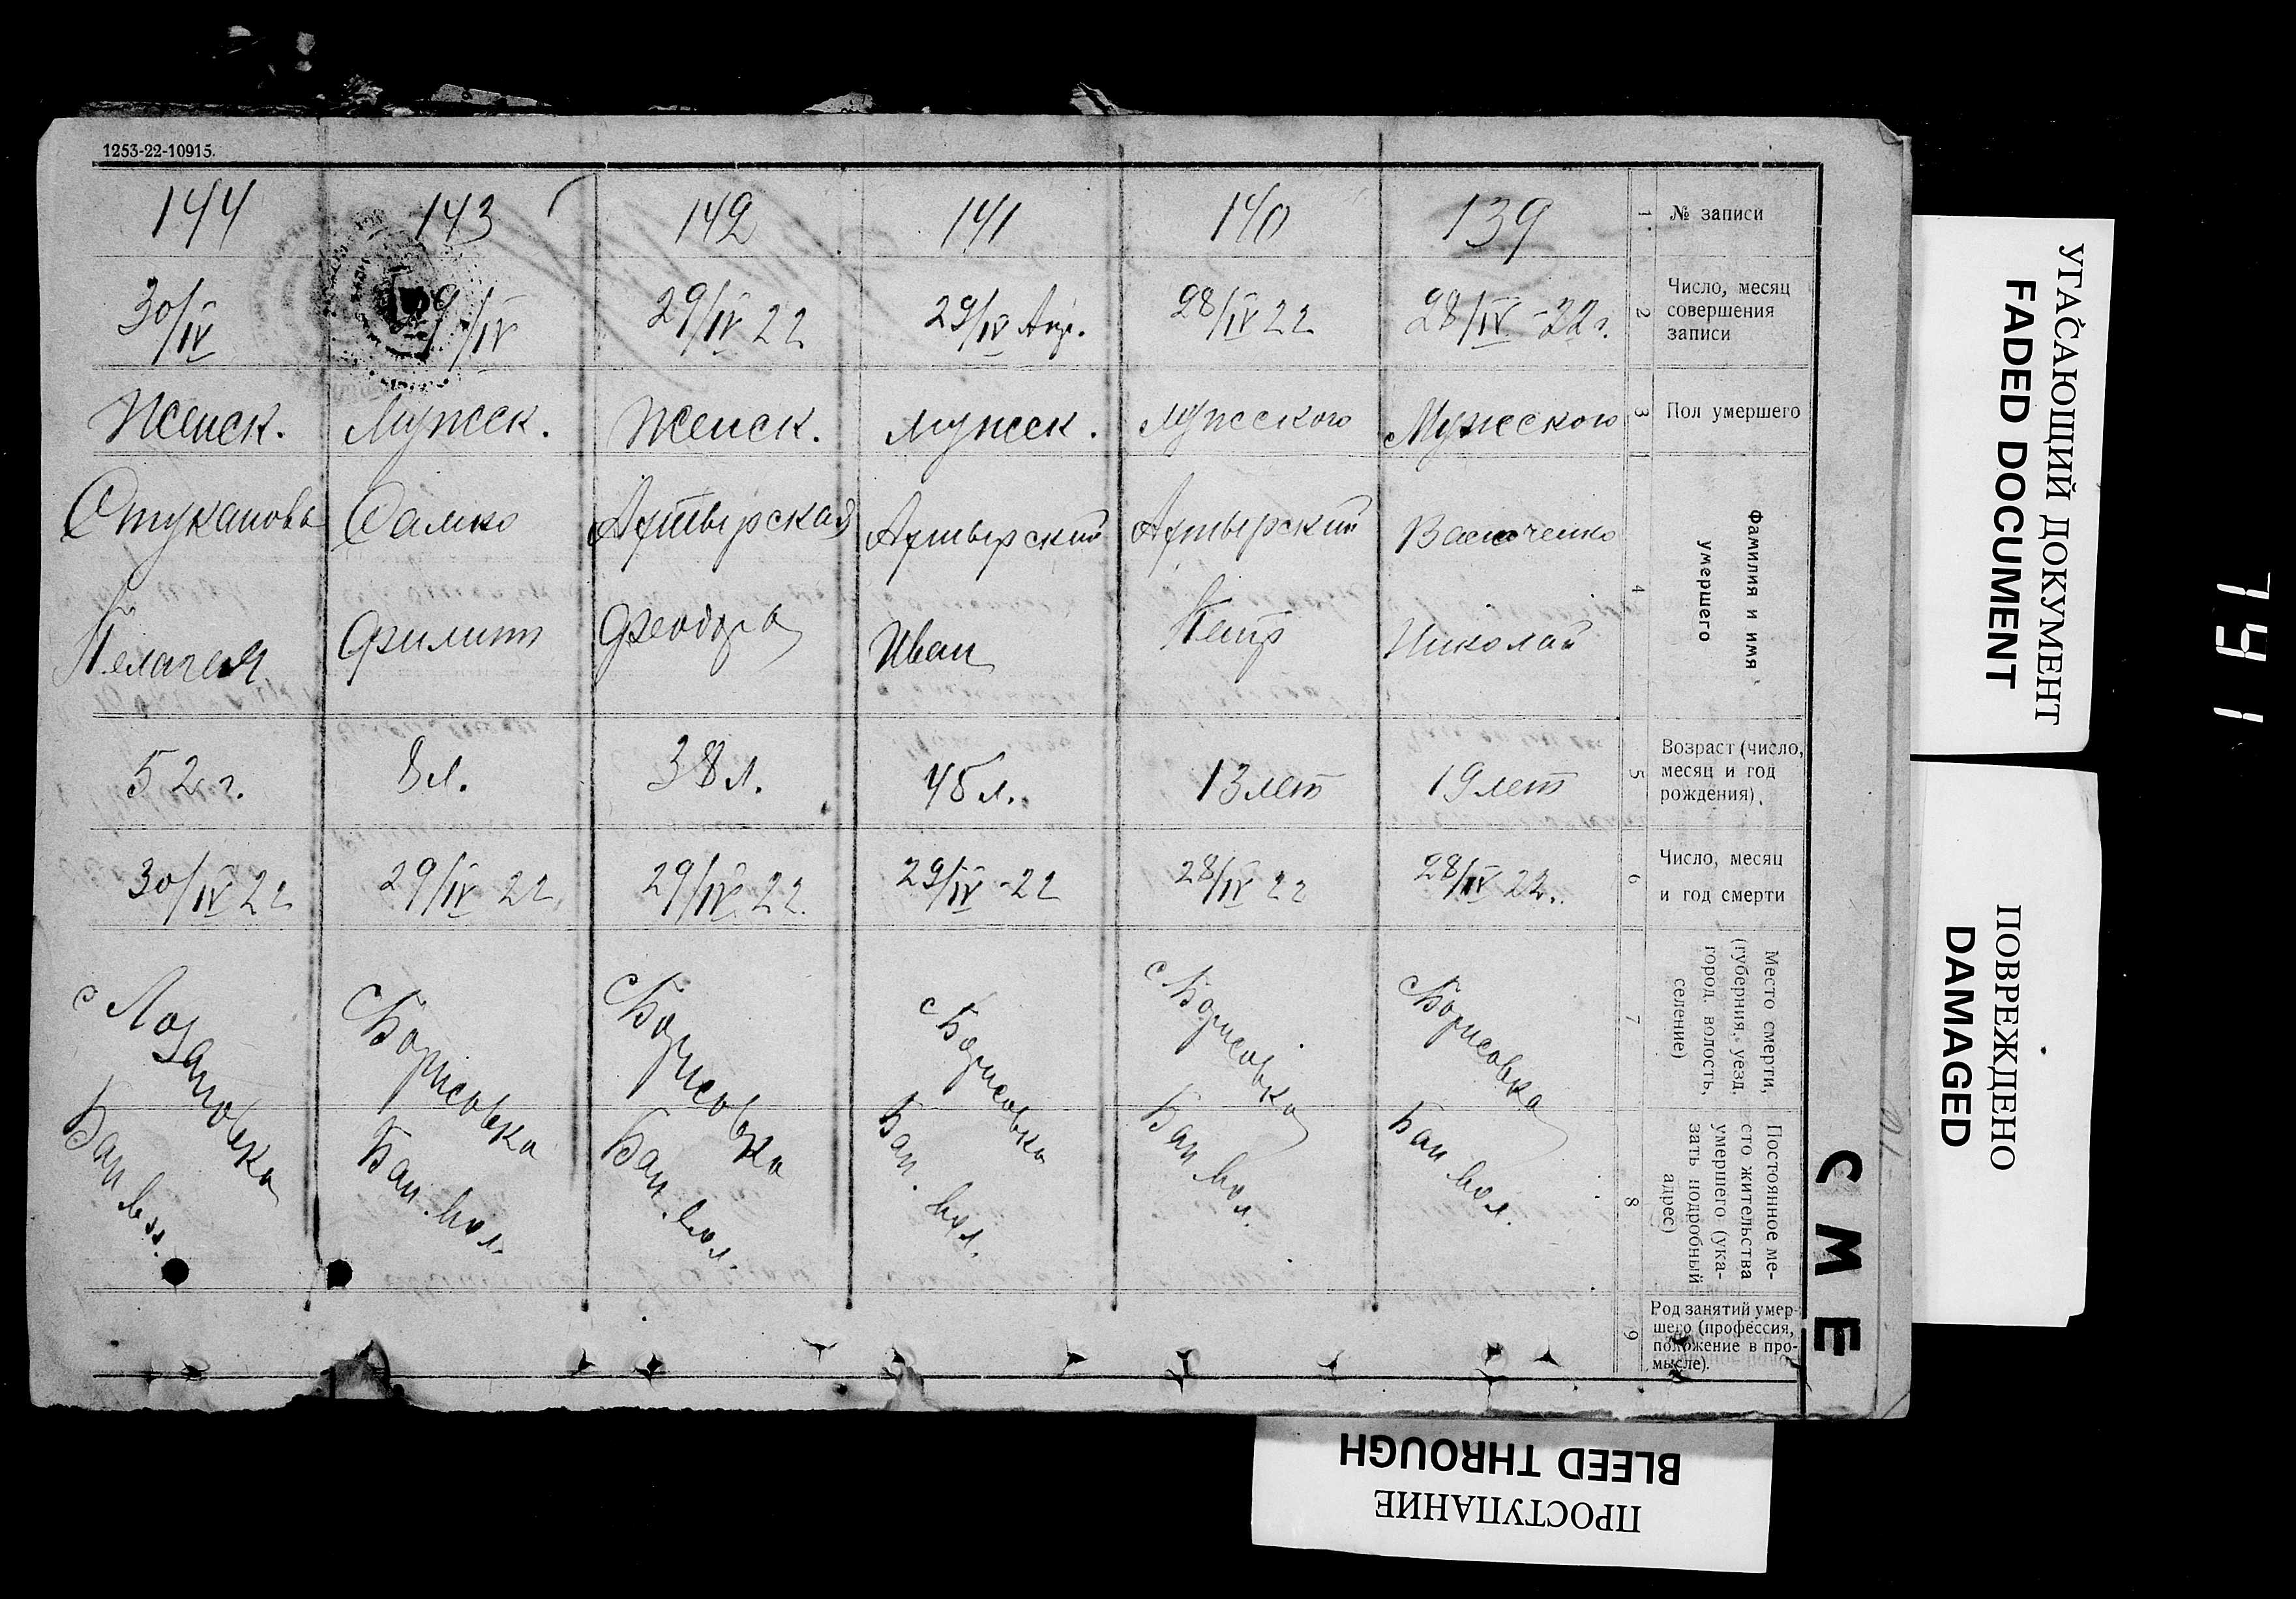 1253-22-10915.
144 143 142 141 140 139 1 № записи
30/IV 29/IV 29/IV 22 29/IV Апр. 28/IV 22 28/IV-22 г. 2 Число, месяц
совершения
записи
Женск. Мужеск. Женск. Мужеск. Мужеского Мужеского 3 Пол умершего
Самко Ахтырская Ахтырский Ахтырский 4 Фамилия и имя
умершего
Пелагея Филипп Феодора Иван Петр Николай
52 г. 8 л. 38 л. 45 л. 13 лет 19 лет 5 Возраст (число,
месяц и год
рождения).
30/IV 22 29/IV 22 29/IV 22. 29/IV-22 28/IV 22 28/IV 22. 6 Число, месяц
и год смерти
с Лозановка с Борисовка с Борисовка с Борисовка с Борисовка с Борисовка 7 Место смерти,
(губерния, уезд,
город, волость,
селение)
Бан вол. Бан. вол. Бан. вол. Бан. вол. Бан вол. Бан вол. 8 Постоянное ме-
сто жительства
умершего (ука-
зать подробный
адрес)
9 Род занятий умер-
шего (профессия,
положение в про-
мысле).
CME
УГАСАЮЩИЙ ДОКУМЕНТ
FADED DOCUMENT
ПОВРЕЖДЕНО
DAMAGED
ПРОСТУПАНИЕ
BLEED THROUGH
791